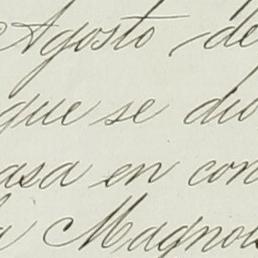 Agosto de
que se dio
asa en con
a Magnol